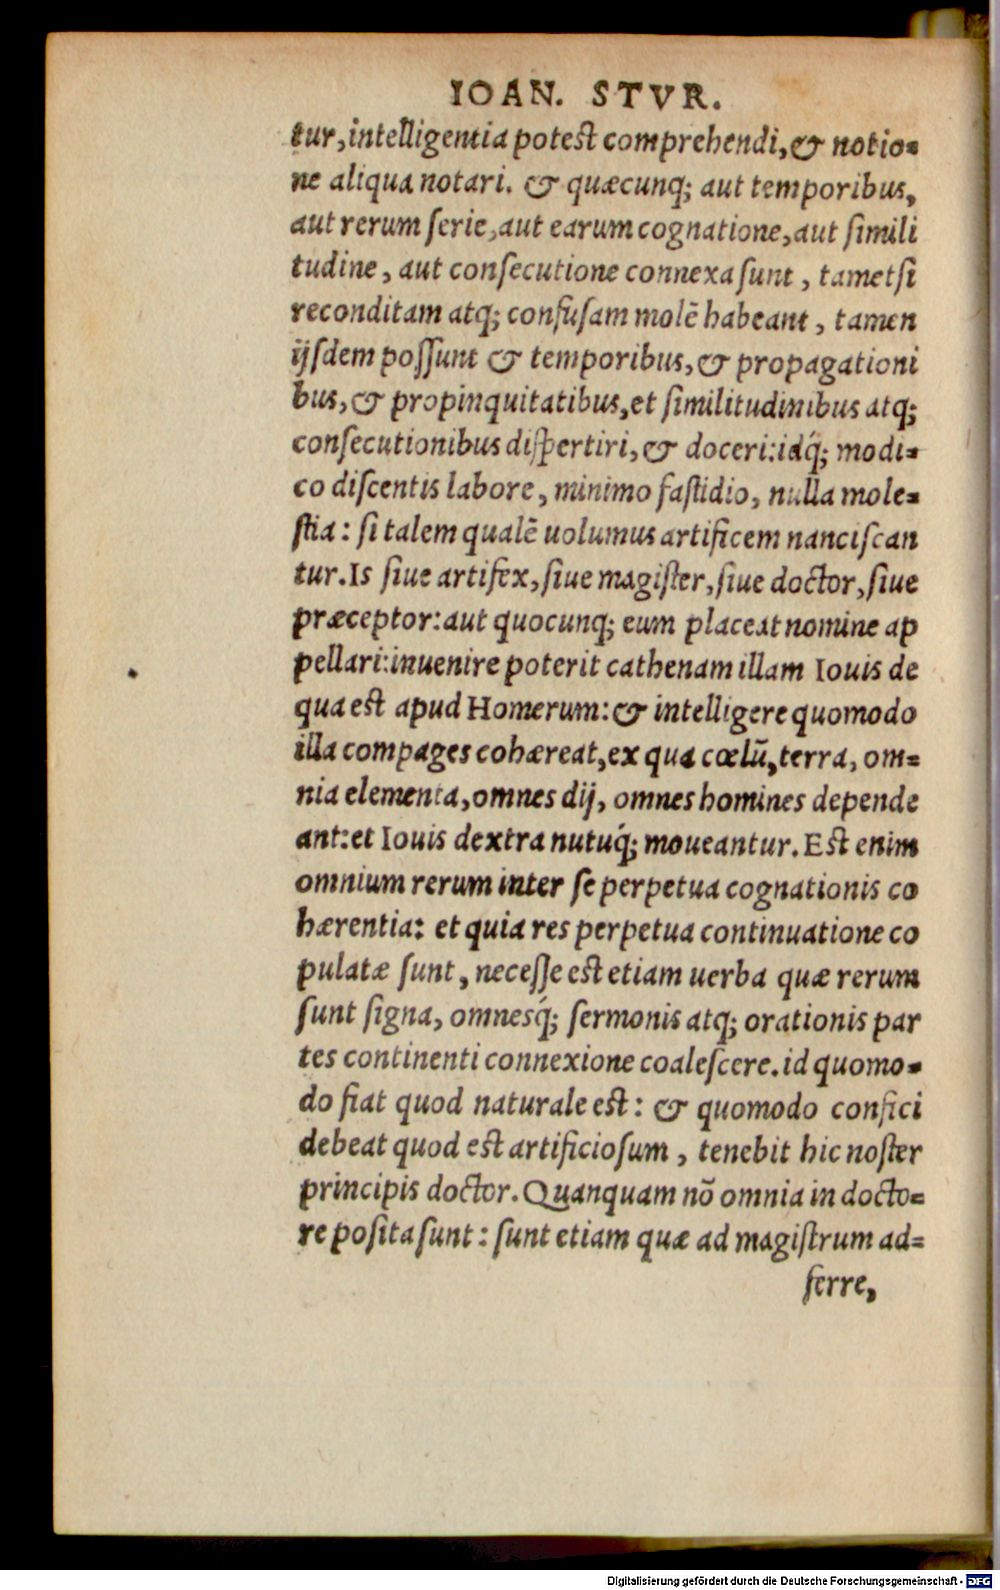 IOAN. STVR.
tur, intelligentia potest comprehendi, & notio-
ne aliqua notari. & quæcunq; aut temporibus,
aut rerum ſerie, aut earum cognatione, aut ſimili
tudine, aut conſecutione connexa ſunt, tametſi
reconditam atq; confuſam molē habeant, tamen
ijſdem poſſunt & temporibus, & propagationi
bus, & propinquitatibus, et ſimilitudinibus atq;
conſecutionibus diſpertiri, & doceri: idq́; modi-
co diſcentis labore, minimo faſtidio, nulla mole-
ſtia: ſi talem qualē uolumus artificem nanciſcan
tur. Is ſiue artifex, ſiue magiſter, ſiue doctor, ſiue
præceptor: aut quocunq; eum placeat nomine ap
pellari: inuenire poterit cathenam illam Iouis de
qua est apud Homerum: & intelligere quomodo
illa compages cohæreat, ex qua cœlū, terra, om-
nia elementa, omnes dij, omnes homines depende
ant: et Iouis dextra nutuq́; moueantur. Est enim
omnium rerum inter ſe perpetua cognationis co
hærentia: et quia res perpetua continuatione co
pulatæ ſunt, neceſſe est etiam uerba quæ rerum
ſunt ſigna, omnesq́; ſermonis atq; orationis par
tes continenti connexione coaleſcere. id quomo-
do fiat quod naturale est: & quomodo confici
debeat quod est artificioſum, tenebit hic noſter
principis doctor. Quanquam nō omnia in docto-
re poſita ſunt: ſunt etiam quæ ad magiſtrum ad-
ferre,
Digitalisierung gefördert durch die Deutsche Forschungsgemeinschaft - DFG